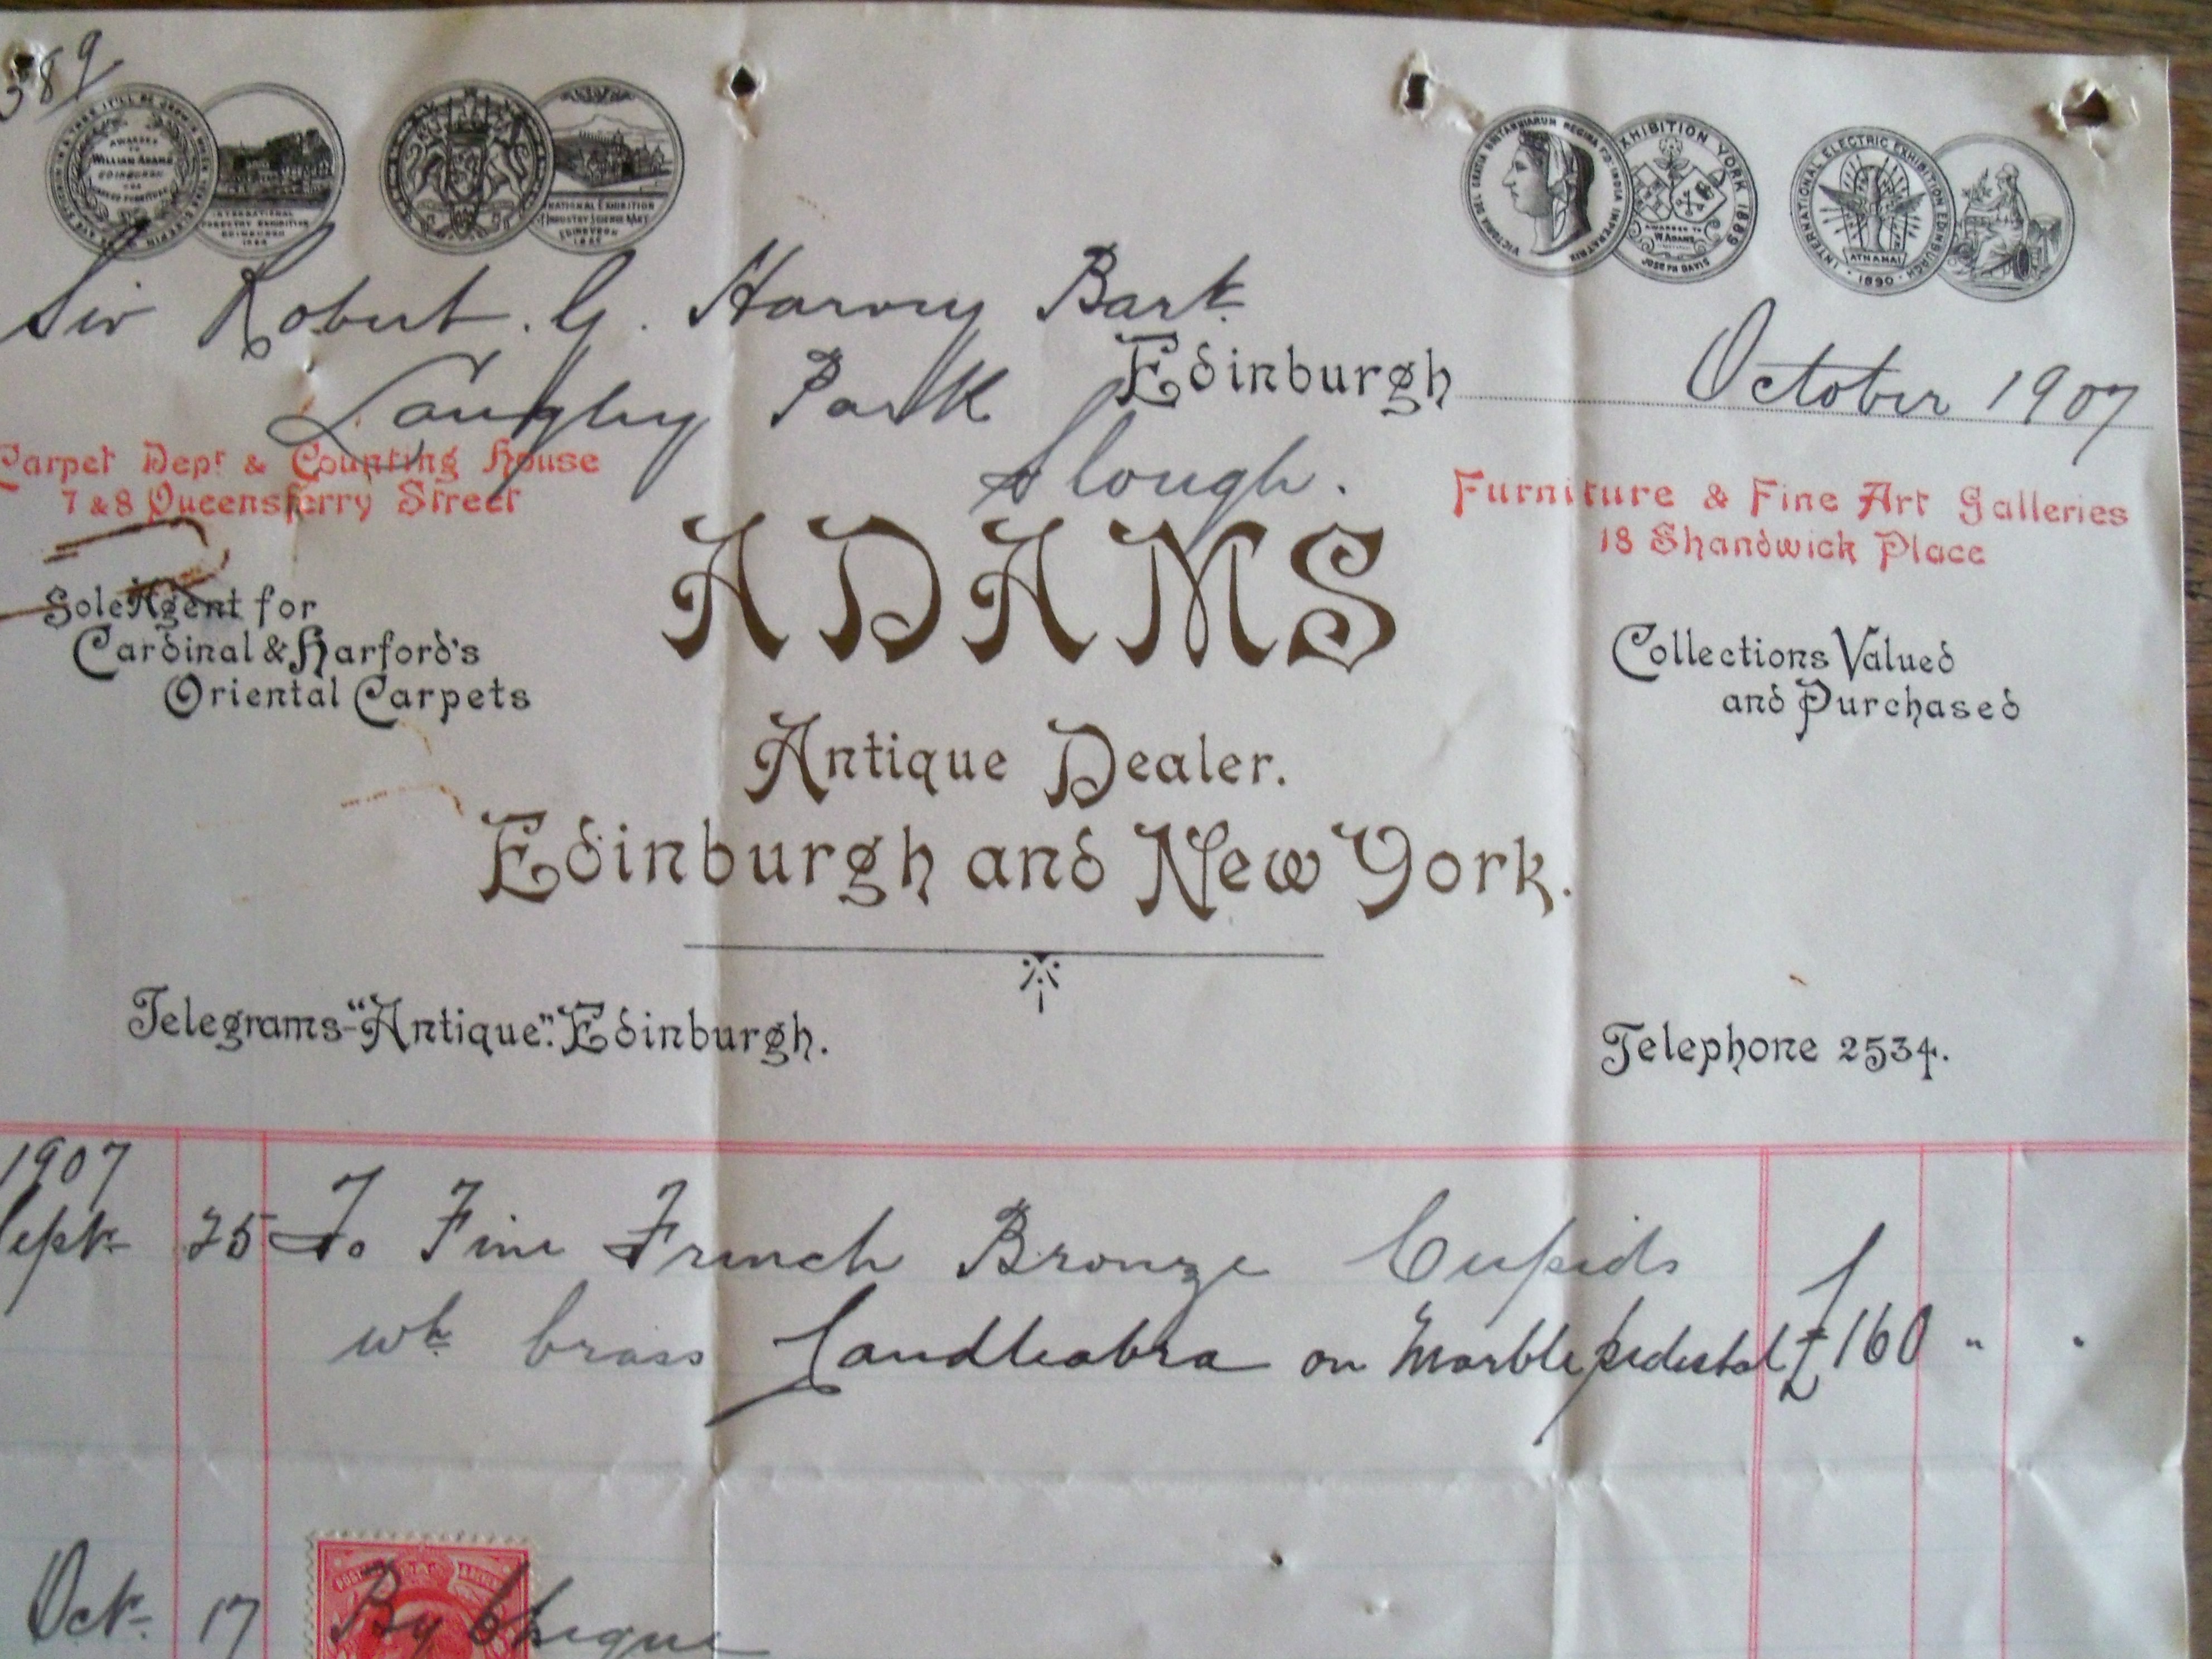 389
AWARDED
TO
WILLIAM ADAMS
EDINBURGH
FOR
INTERNATIONAL
FORESTRY EXHIBITION
EDINBURGH
NATIONAL EXHIBITION
INDUSTRY SCIENCE ART
EDINBURGH
VICTORIA DEI GRATIA BRITANNIARUM REGINA F.D. INDIA IMPERATRIX
EXHIBITION YORK 1889
AWARDED TO
W ADAMS
JOSEPH DAVIS
INTERNATIONAL ELECTRIC EXHIBITION EDINBURGH
1890
Sir Robert. G. Harvey Bart
Langley Park
Slough.
Edinburgh October 1907
Carpet Dept & Counting House
7 & 8 Queensferry Street
Furniture & Fine Art Galleries
18 Shandwick Place
Sole Agent for
Cardinal & Harford's
Oriental Carpets
ADAMS
Collections Valued
and Purchased
Antique Dealer.
Edinburgh and New York.
Telegrams-"Antique". Edinburgh.
Telephone 2534.
1907
Sept 25 To Fine French Bronze Cupids
wt brass Candleabra on Marble pedestal £160 " "
Oct 17 By Cheque